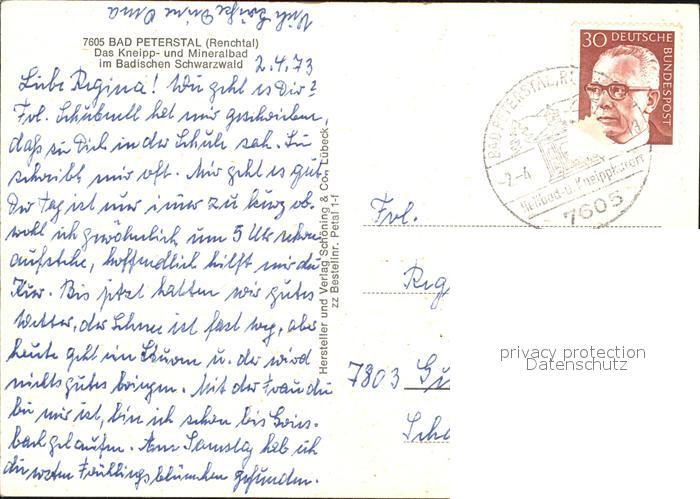 Viele Grüße Deine Oma
7605 BAD PETERSTAL (Renchtal)
Das Kneipp- und Mineralbad
im Badischen Schwarzwald
2.4.73
Liebe Regina! Wie geht es Dir?
Frl. Schubnell hat mir geschrieben,
daß sie Dich in der Schule sah. Sie
schreibt mir oft. Mir geht es gut.
Der Tag ist nur immer zu kurz ob-
wohl ich gewöhnlich um 5 Uhr schon
aufstehe, hoffendlich hilft mir die
Kur. Bis jetzt hatten wir gutes
Wetter, der Schnee ist fast weg, aber
heute geht ein Sturm u. der wird
nichts gutes bringen. Mit der Frau die
bei mir ist, bin ich schon bis Gries-
bach gelaufen. Am Samstag hab ich
die ersten Frühlingsblümchen gefunden.
Hersteller und Verlag Schöning & Co., Lübeck
zz Bestellnr. Petal 1-f
30 DEUTSCHE
BUNDESPOST
BAD PETERSTAL
-2.-4
Heilbad-u.Kneippkurort
7605
Frl.
Reg
7803 Gu
Scha
privacy protection
Datenschutz